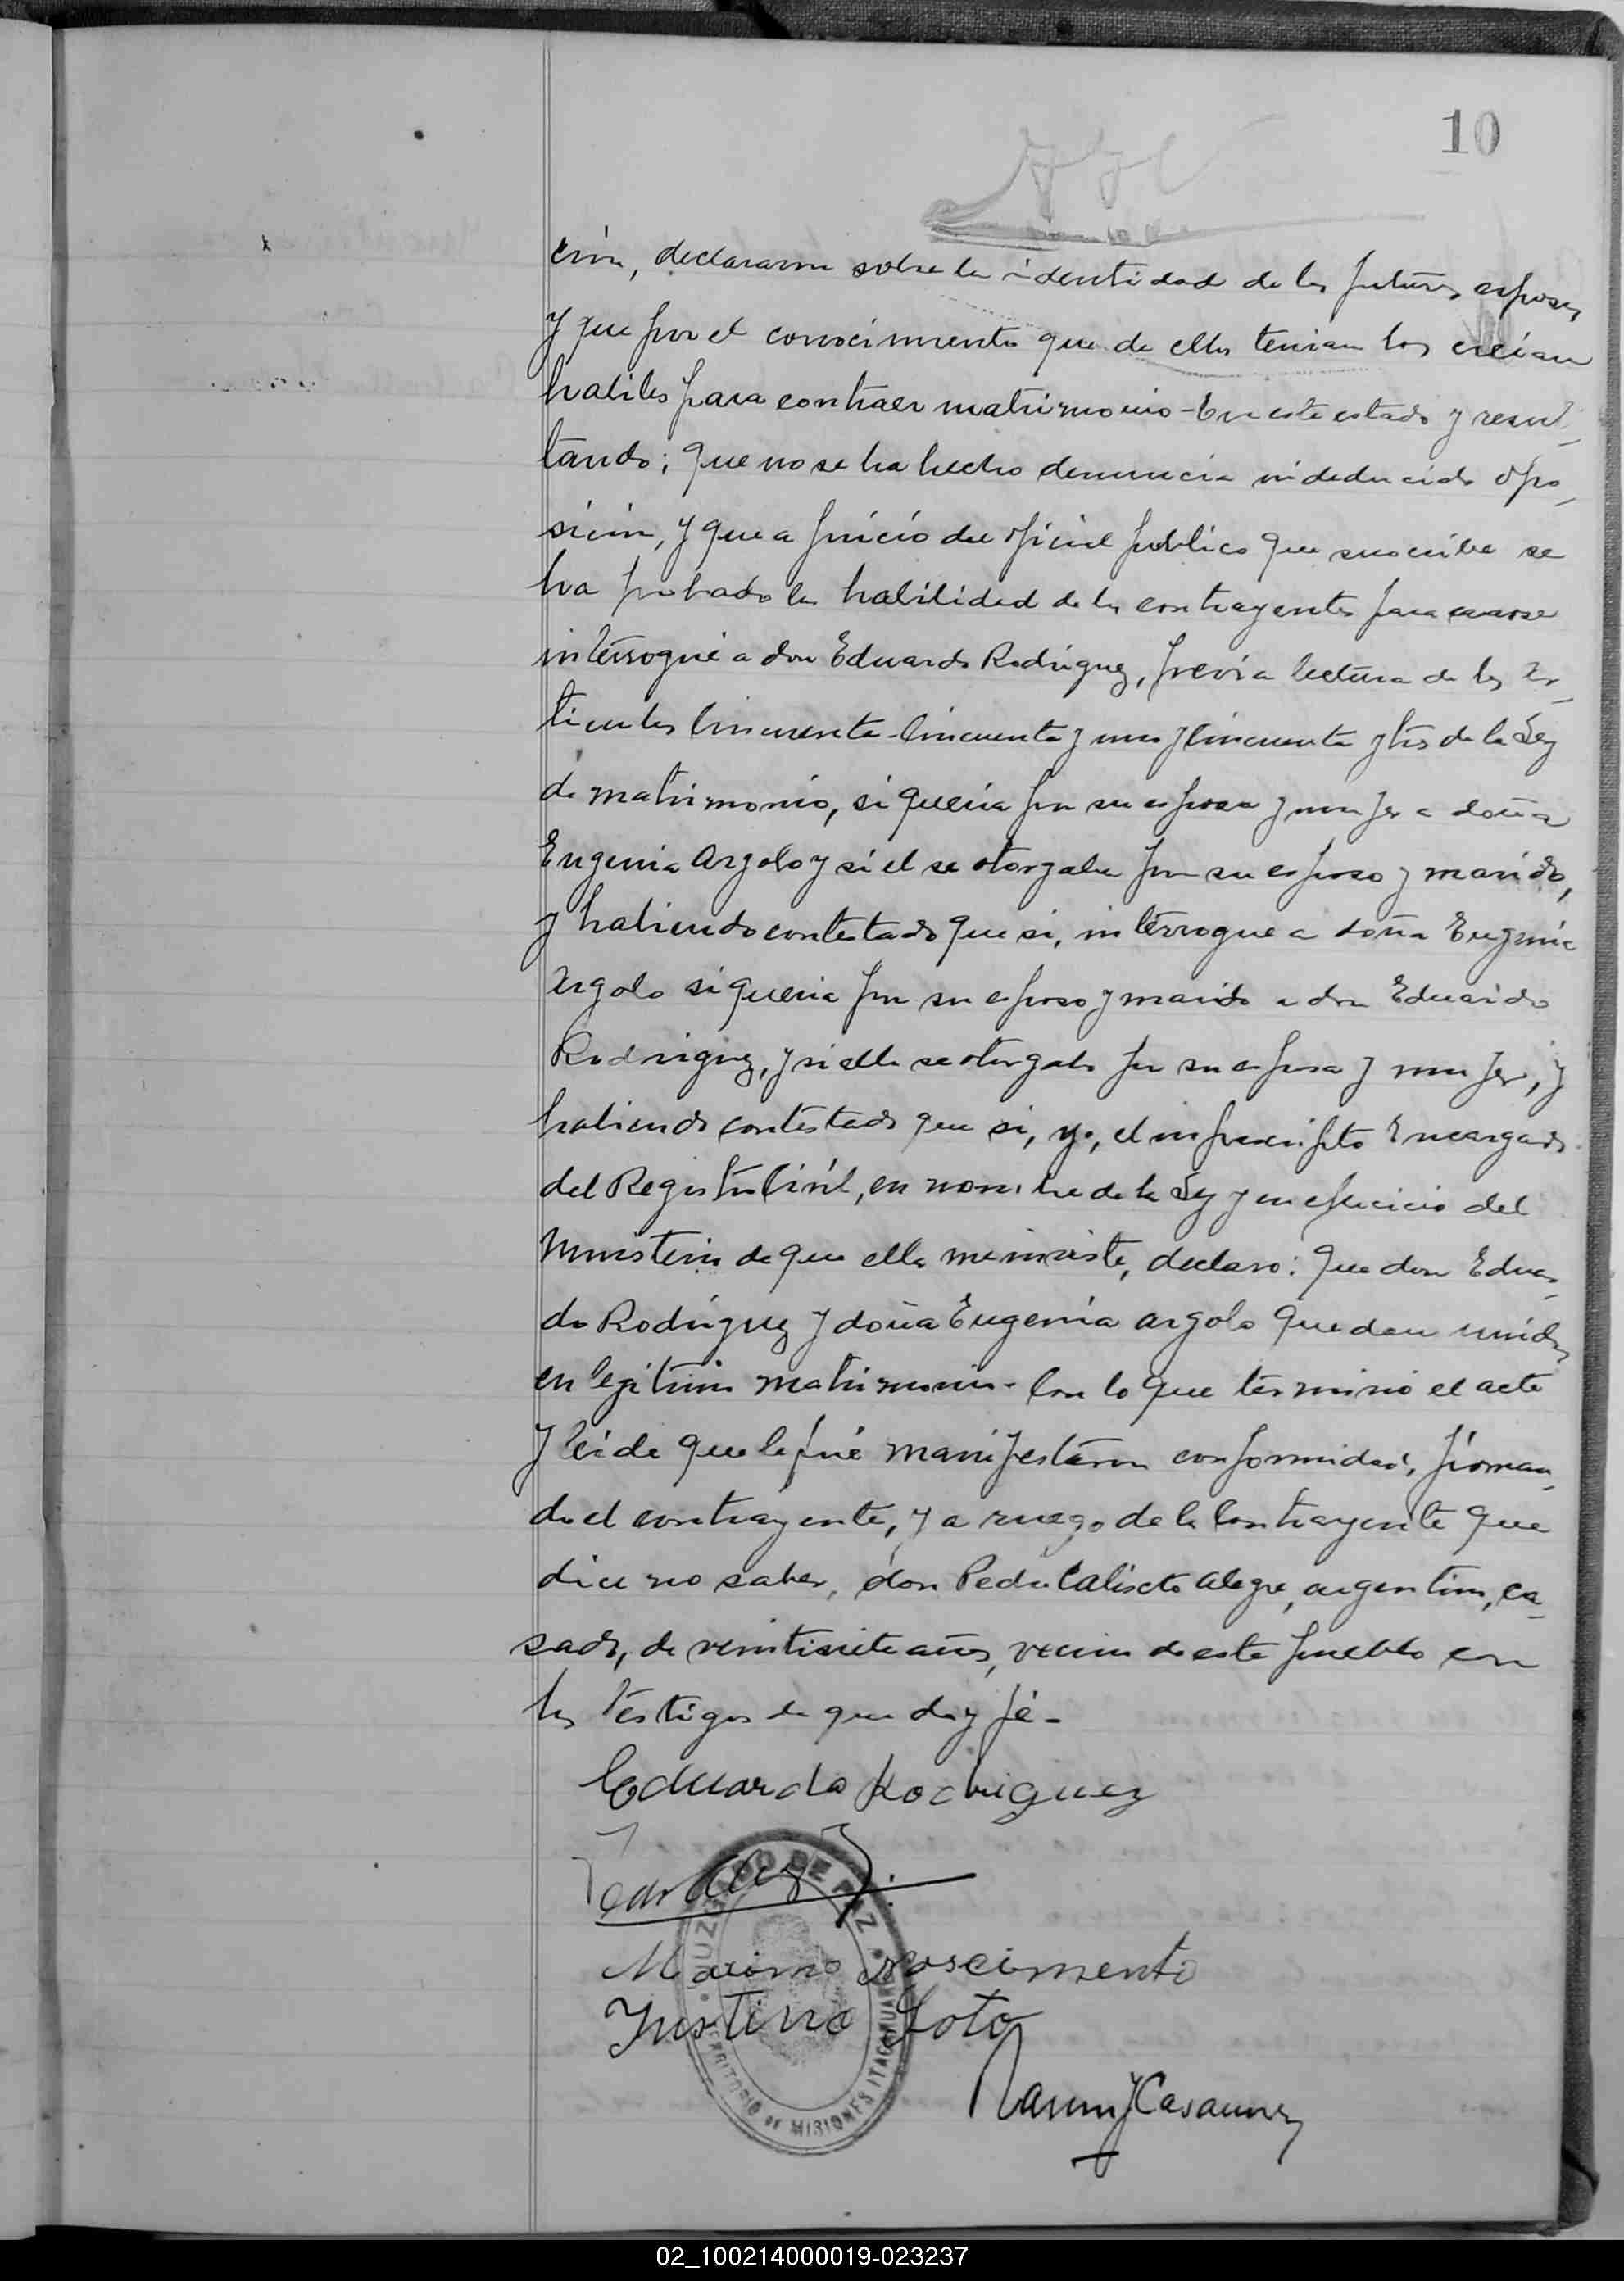 10
ción, declararon sobre la identidad de los futuros esposos
y que por el conocimiento que de ellos tenian los creian
habiles para contraer matrimonio - En este estado y resul-
tando; que no se ha hecho denuncia ni deducido opo-
sición, y que a juicio del oficial publico que suscribe se
ha probado la habilidad de los contrayentes para casarse
interrogué a don Eduardo Rodriguez, previa lectura de los ar-
ticulos Cincuenta - Cincuenta y uno y Cincuenta y tres de la Ley
de matrimonio, si queria por su esposa y mujer a doña
Eugenia Argolo y si el se otorgaba por su esposo y marido,
y habiendo contestado que si, interrogue a doña Eugenia
Argolo si queria por su esposo y marido a don Eduardo
Rodriguez, y si ella se otorgaba por su esposa y mujer, y
habiendo contestado que si, yo, el infrascripto Encargado
del Registro Civil, en nombre de la Ley y en ejercicio del
Ministerio de que ella me inviste, declaro: que don Eduar-
do Rodriguez y doña Eugenia Argolo quedan unidos
en legitimo matrimonio - Con lo que terminó el acto
y leida que le fué manifestaron conformidad, firman-
do el contrayente, y a ruego de la Contrayente que
dice no saber, don Pedro Calisto Alegre, argentino, ca-
sado, de veintisiete años, vecino de este pueblo con
los testigos de que doy fé -
Eduardo Rodriguez
Maximo Nascimento
Justino Soto
JUZGADO DE PAZ
TERRITORIO DE MISIONES ITACARUARE
02_100214000019-023237